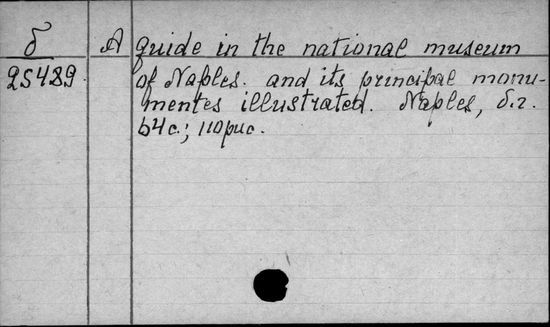 δ A guide in the national museum
25489 of Naples. and its principal monu-
mentes illustrated. Naples, б.г.
64с.; 110рис.